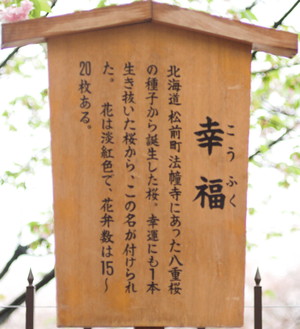 幸福
こうふく
北海道 松前町法幢寺にあった八重桜
の種子から誕生した桜。幸運にも1本
生き抜いた桜から、この名が付けられ
た。 花は淡紅色で、花弁数は15〜
20枚ある。